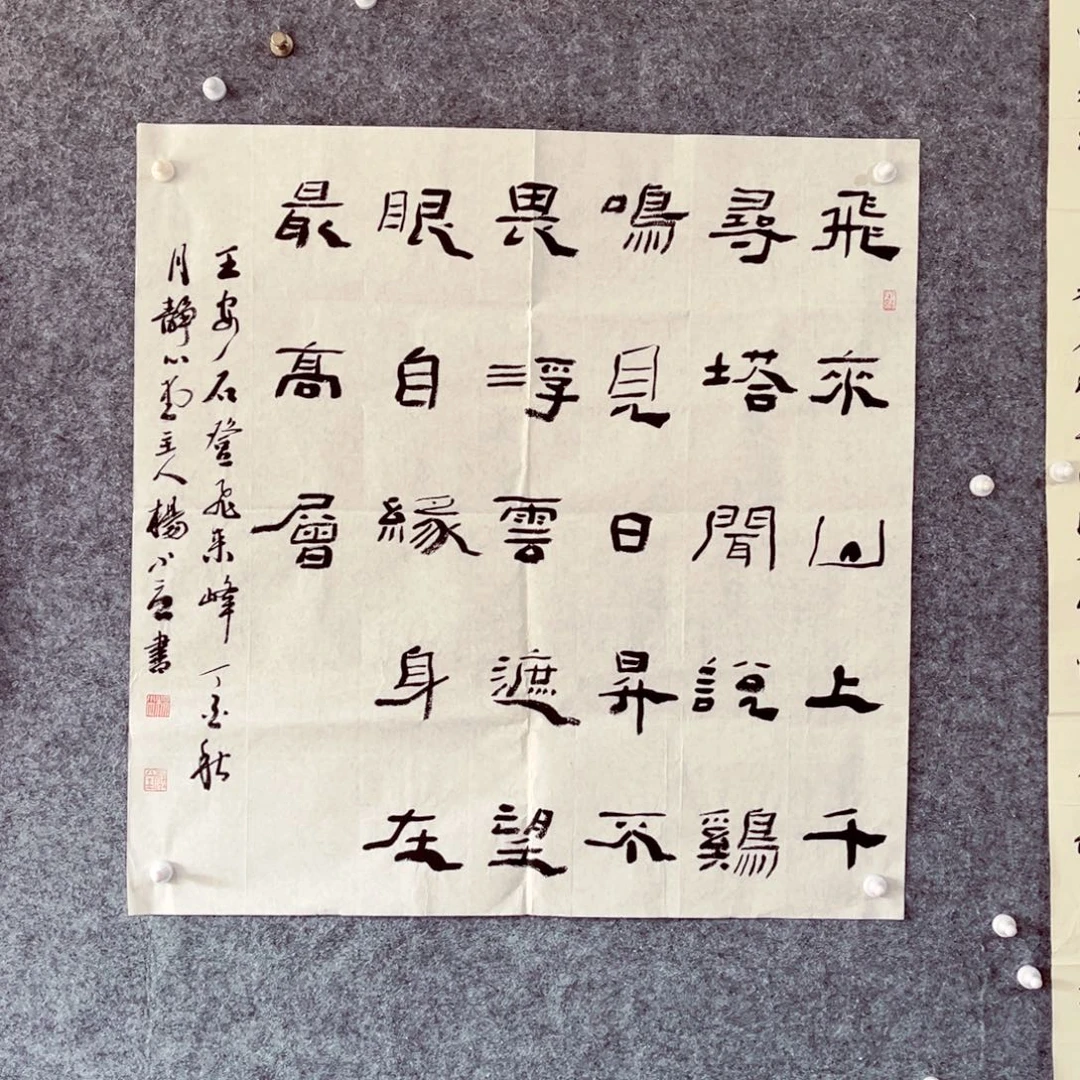 飛來山上千
尋塔聞說鷄
鳴見日昇不
畏浮雲遮望
眼自緣身在
最高層
王安石登飛来峰 丁酉秋
月靜心堂主人楊小書